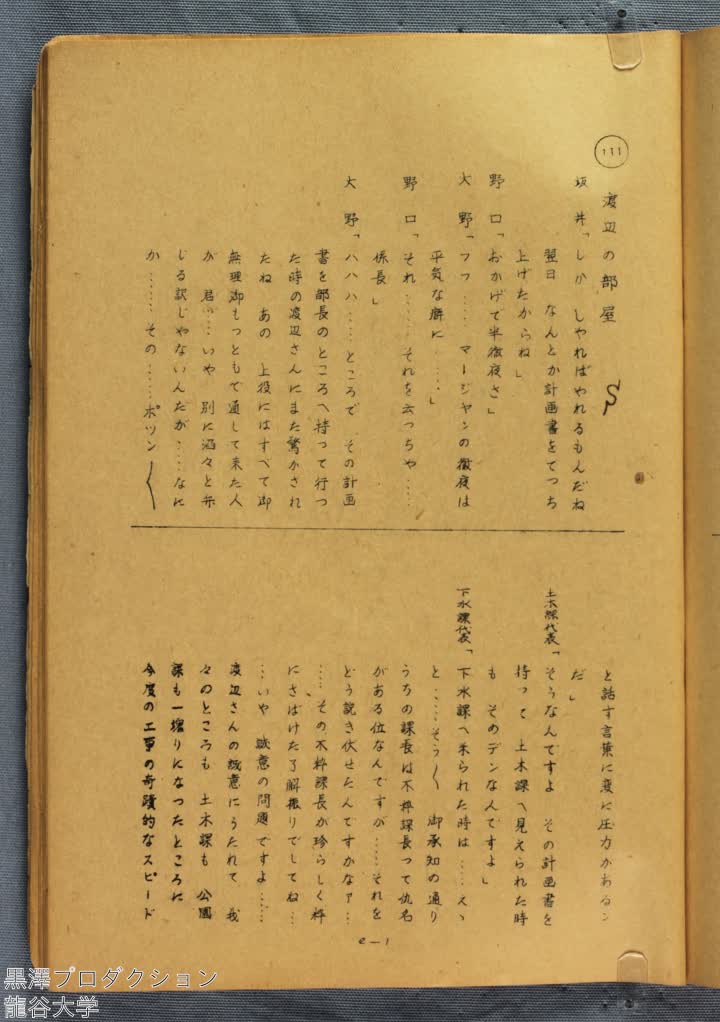 111
渡辺の部屋
坂井「しかしやればやれるもんだね
翌日　なんとか計画書をでっち
上げたからね」
野口「おかげで半徹夜さ」
大野「フフ……　マージャンの徹夜は
平気な癖に……」
野口「それ……　それを云っちゃ……
係長」
大野「ハハハ……ところで　その計画
書を部長のところへ持って行っ
た時の渡辺さんにまた驚かされ
たね　あの　上役にはすべて御
無理御もっともで通して来た人
が　君……いや　別に滔々と弁
じる訳じゃないんだが……なに
か……その……ポツン〱
と話す言葉に変に圧力があるン
だ」
土木課代表「そうなんですよ　その計画書を
持って　土木課へ見えられた時
も　そのデンなんですよ」
下水課代表「下水課へ来られた時は……えゝ
と……そう〱　御承知の通り
うちの課長は不粋課長って仇名
がある位なんですが……それを
どう説き伏せたんですかなァ…
…、その不粋課長が珍らしく粋
にさばけた了解振りでしてね…
…いや　誠意の問題ですよ……
渡辺さんの誠意にうたれて　我
々のところも　土木課も　公園
課も一塊りになったところに
今度の工事の奇蹟的なスピード
e—1
黒澤プロダクション
龍谷大学